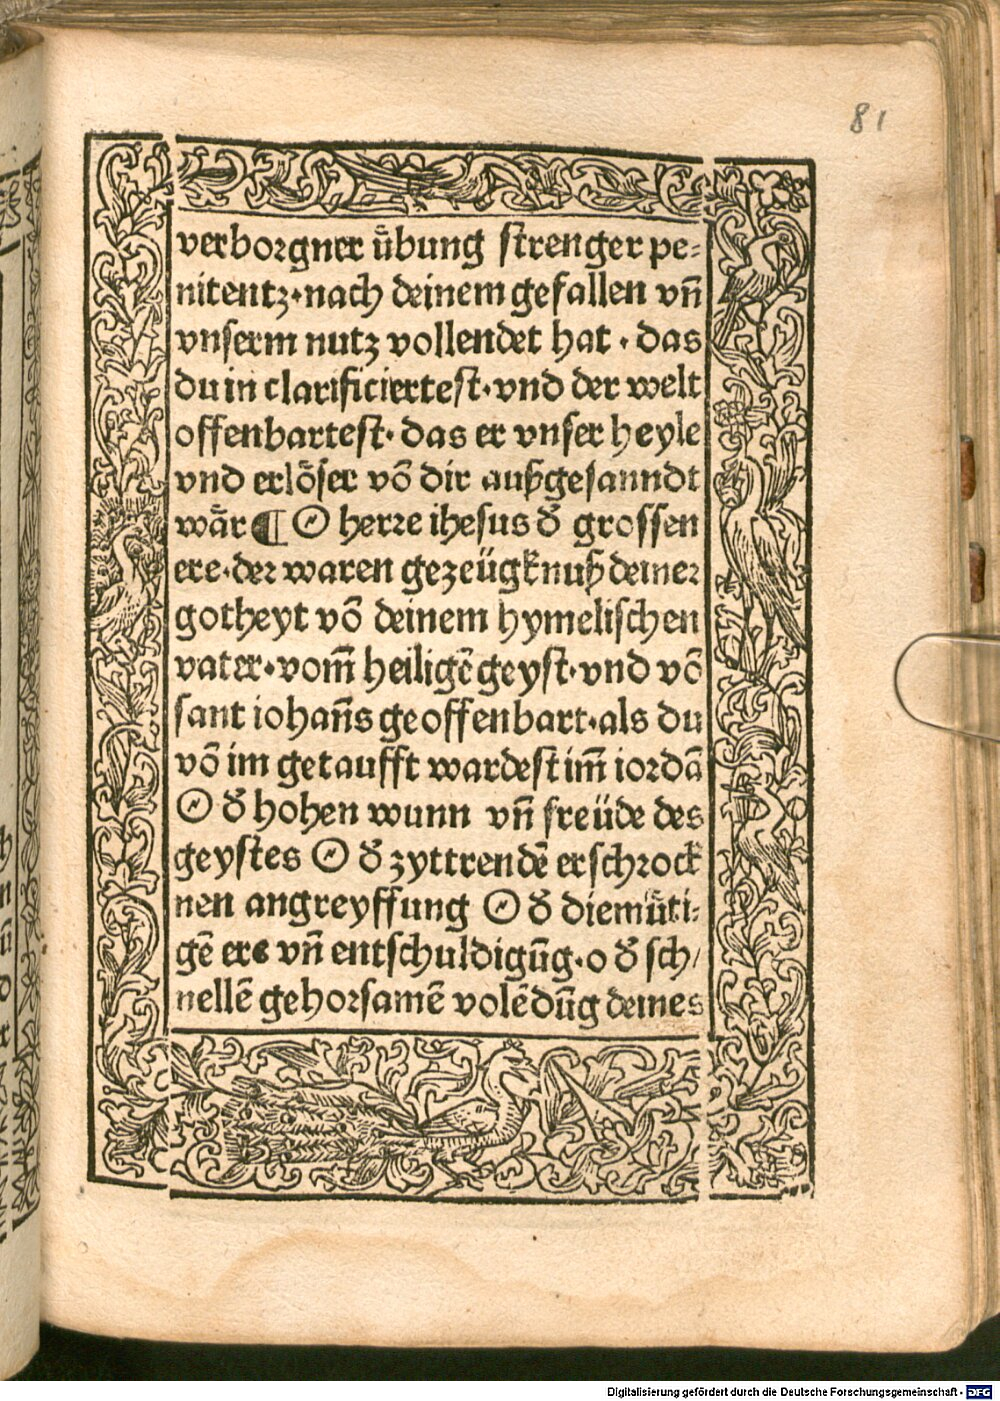 81
verborgner ůbung strenger pe-
nitentz·nach deinem gefallen vñ
vnserm nutz vollendet hat · das
du in clarificiertest·vnd der welt
offenbartest· das er vnser heyle
vnd erlȯser võ dir außgesanndt
wår ¶ O herre ihesus d̕ grossen
ere·der waren gezeügknuß deiner
gotheyt võ deinem hymelischen
vater·vom̃ heiligẽ geyst·vnd võ
sant iohañs geoffenbart·als du
võ im getaufft wardest im̃ iordã
O d̕ hohen wunn vñ freüde des
geystes O d̕ zyttrendẽ erschrock
nen angreyffung O d̕ diemůti-
gẽ ere vñ entschuldigũg·o d̕ sch/
nellẽ gehorsamẽ volẽdũg deines
Digitalisierung gefördert durch die Deutsche Forschungsgemeinschaft - DFG